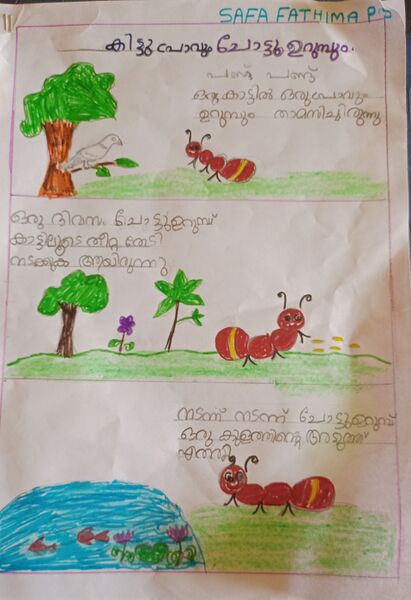 SAFA FATHIMA P S
കിട്ടു പ്രാവും ചോട്ടു ഉറുമ്പും.
പണ്ട് പണ്ട്
ഒരു കാട്ടിൽ ഒരു പ്രാവും
ഉറുമ്പും താമസിച്ചിരുന്നു
ഒരു ദിവസം ചോട്ടു ഉറുമ്പ്
കാട്ടിലൂടെ തീറ്റ തേടി
നടക്കുക ആയിരുന്നു.
നടന്ന് നടന്ന് ചോട്ടുഉറുമ്പ്
ഒരു കുളത്തിന്റെ അടുത്ത്
എത്തി